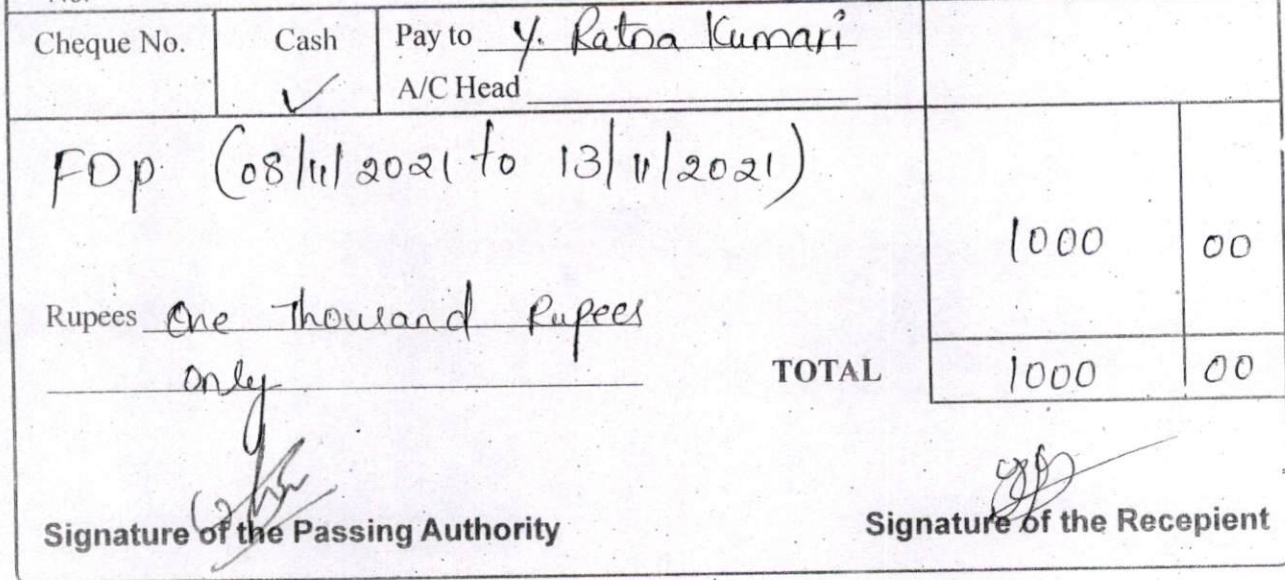 Cheque No. Cash Pay to Y. Ratna Kumari
✓ A/C Head
FDP (08/11/2021 to 13/11/2021)
1000 00
Rupees One Thousand Rupees
only
TOTAL 1000 00
Signature of the Passing Authority Signature of the Recepient